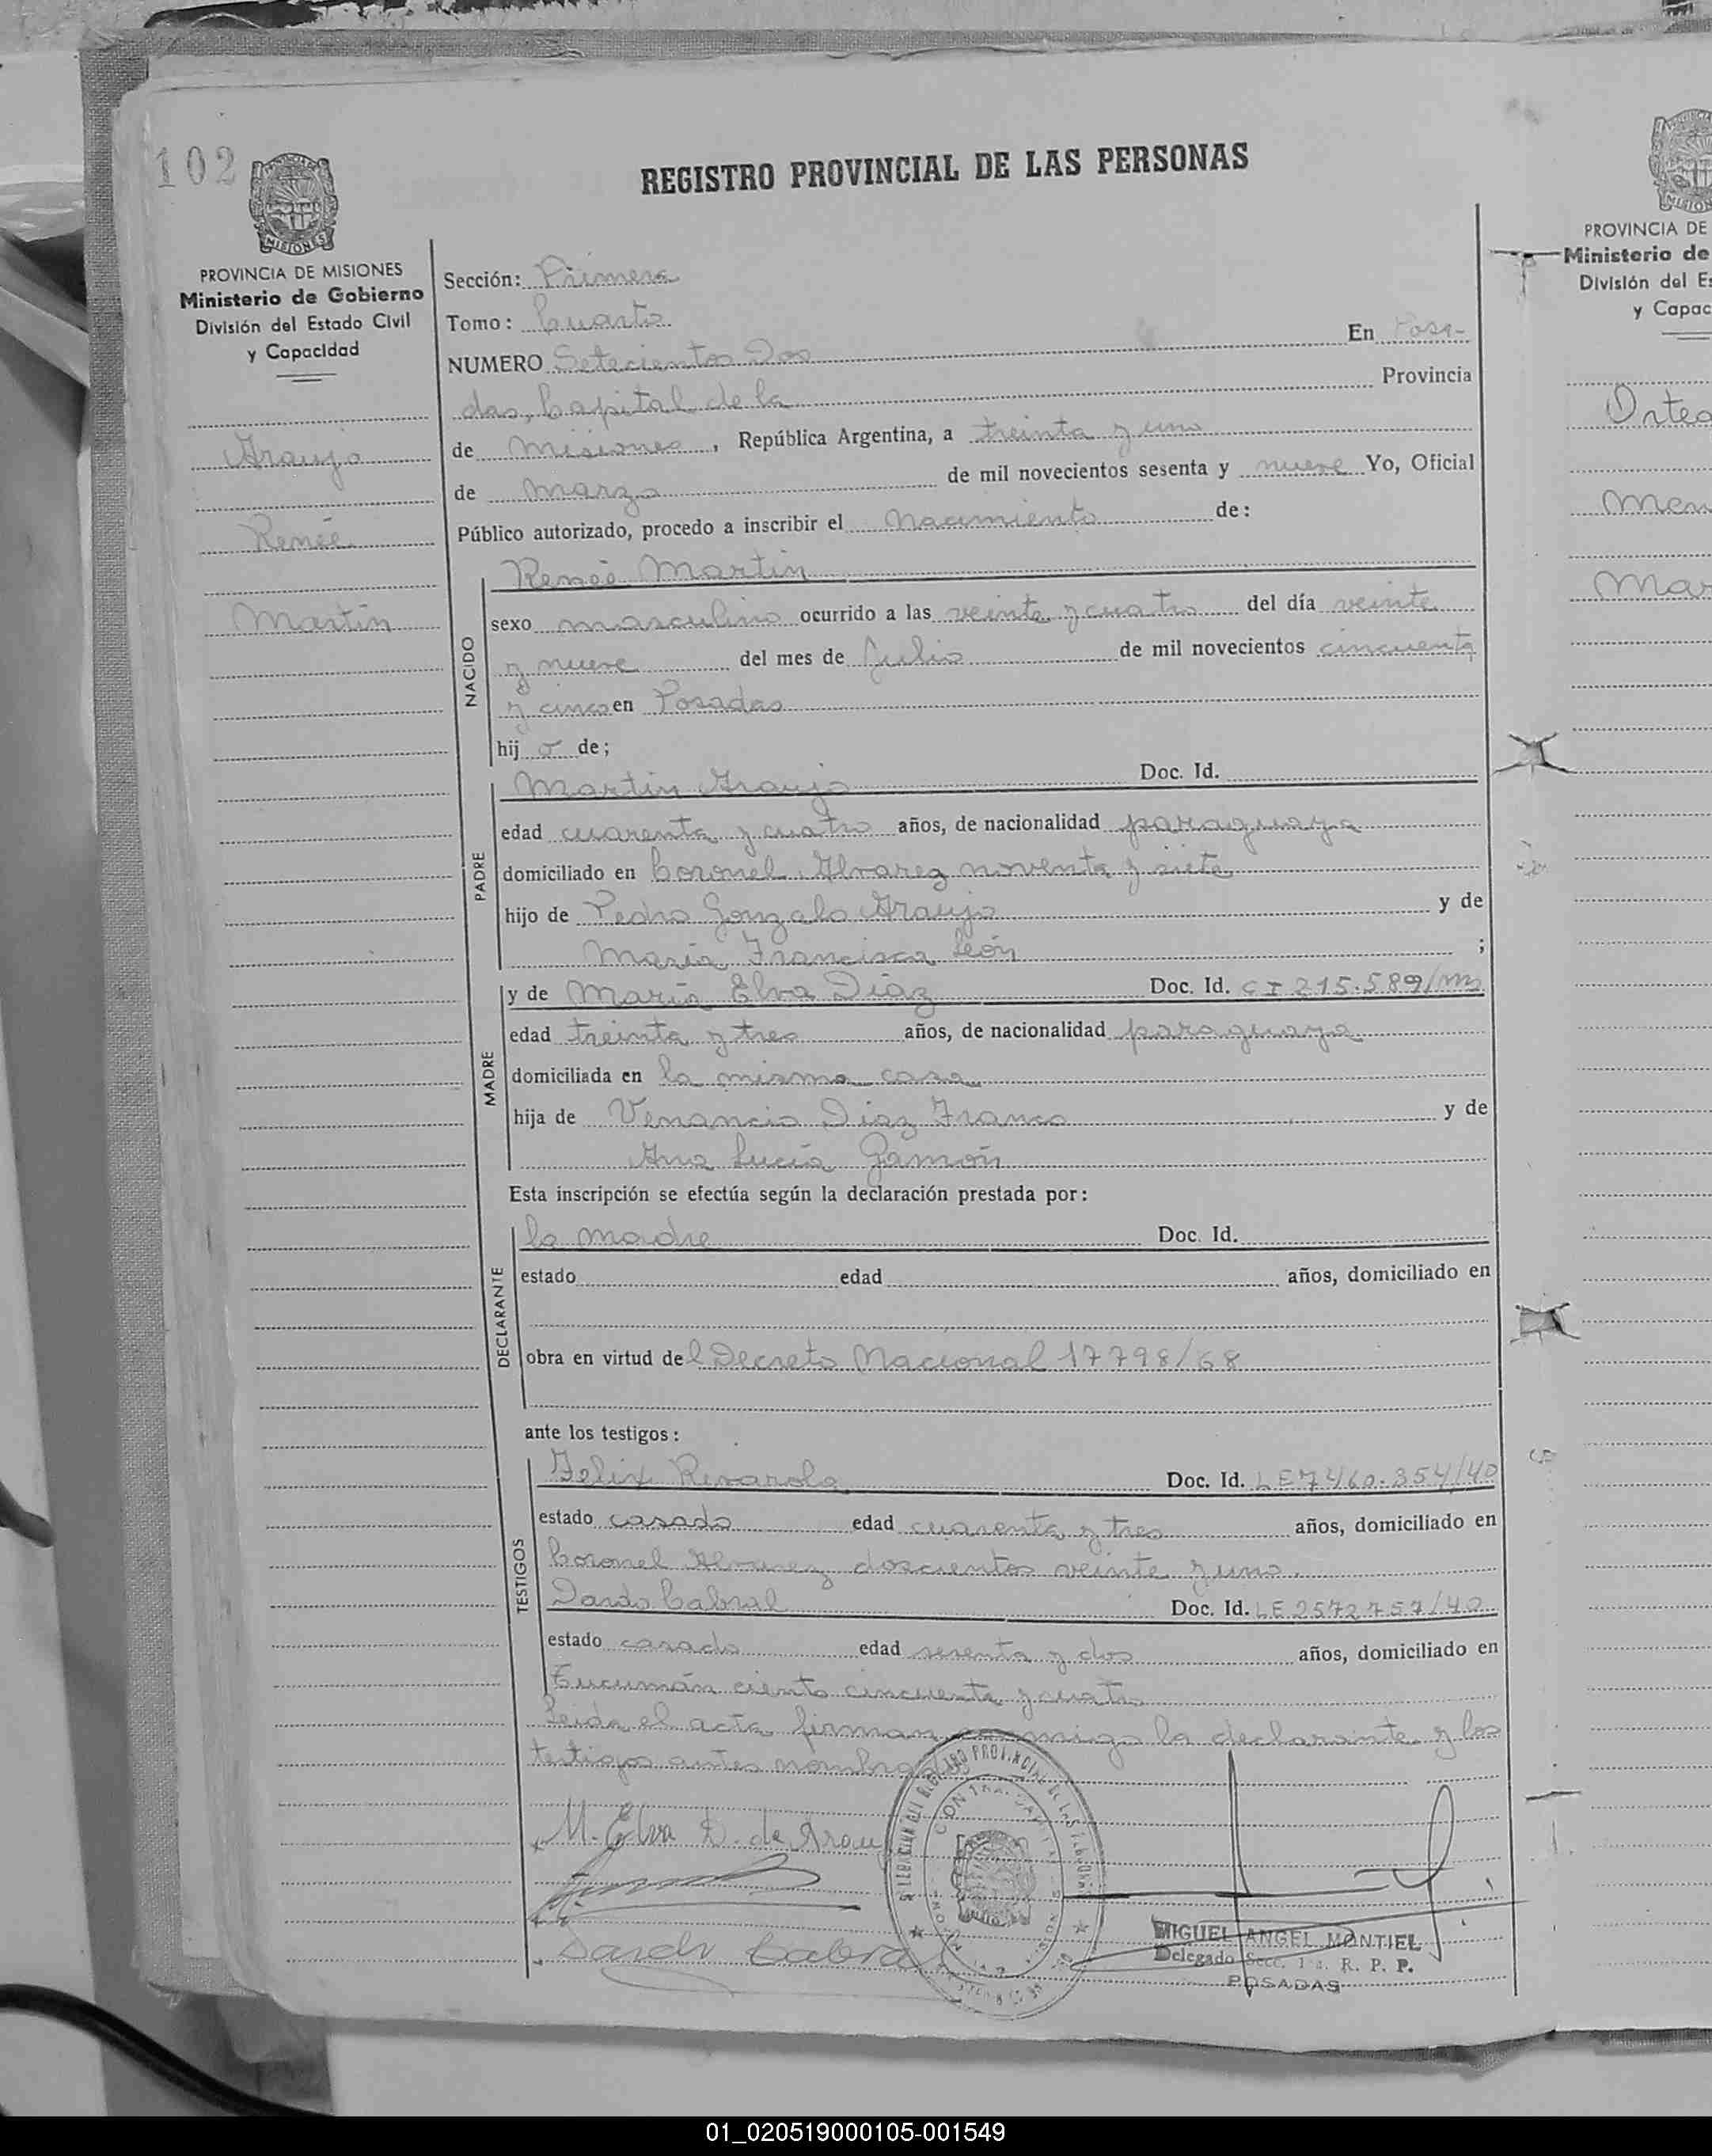 102
REGISTRO PROVINCIAL DE LAS PERSONAS
MISIONES
PROVINCIA DE MISIONES
Ministerio de Gobierno
División del Estado Civil
y Capacidad
Araujo
Renée
Martín
Sección: Primera
Tomo: Cuarto
NUMERO Setecientos Dos En Posa-
das, Capital de la Provincia
de Misiones, República Argentina, a treinta y uno
de marzo de mil novecientos sesenta y nueve Yo, Oficial
Público autorizado, procedo a inscribir el nacimiento de:
NACIDO
Renée Martín
sexo masculino ocurrido a las veinte y cuatro del día veinte
y nueve del mes de Julio de mil novecientos cincuenta
y cinco en Posadas
hij o de;
PADRE
Martín Araujo Doc. Id.
edad cuarenta y cuatro años, de nacionalidad paraguaya
domiciliado en Coronel Alvarez noventa y siete
hijo de Pedro Gonzalo Araujo y de
María Francisca León ;
MADRE
y de María Elva Díaz Doc. Id. CI 215.589/M
edad treinta y tres años, de nacionalidad paraguaya
domiciliada en la misma casa
hija de Venancio Diaz Franco y de
Ana Lucía Gamón
Esta inscripción se efectúa según la declaración prestada por:
DECLARANTE
la madre Doc. Id.
estado edad años, domiciliado en
obra en virtud del Decreto Nacional 17798/68
ante los testigos:
TESTIGOS
Felix Rivarola Doc. Id. LE 7460.854/40
estado casado edad cuarenta y tres años, domiciliado en
Coronel Alvarez doscientos veinte y uno.
Dardo Cabral Doc. Id. LE 2572757/40
estado casado edad sesenta y dos años, domiciliado en
Tucumán ciento cincuenta y cuatro
Leida el acta firman conmigo la declarante y los
testigos antes nombrados
M. Elva D. de Arauj
Dardo Cabral
MIGUEL ANGEL MONTIEL
Delegado Secc. 1a. R. P. P.
POSADAS
PROVINCIA DE
Ministerio de
División del Es
y Capac
Orteg
Mar
01_020519000105-001549